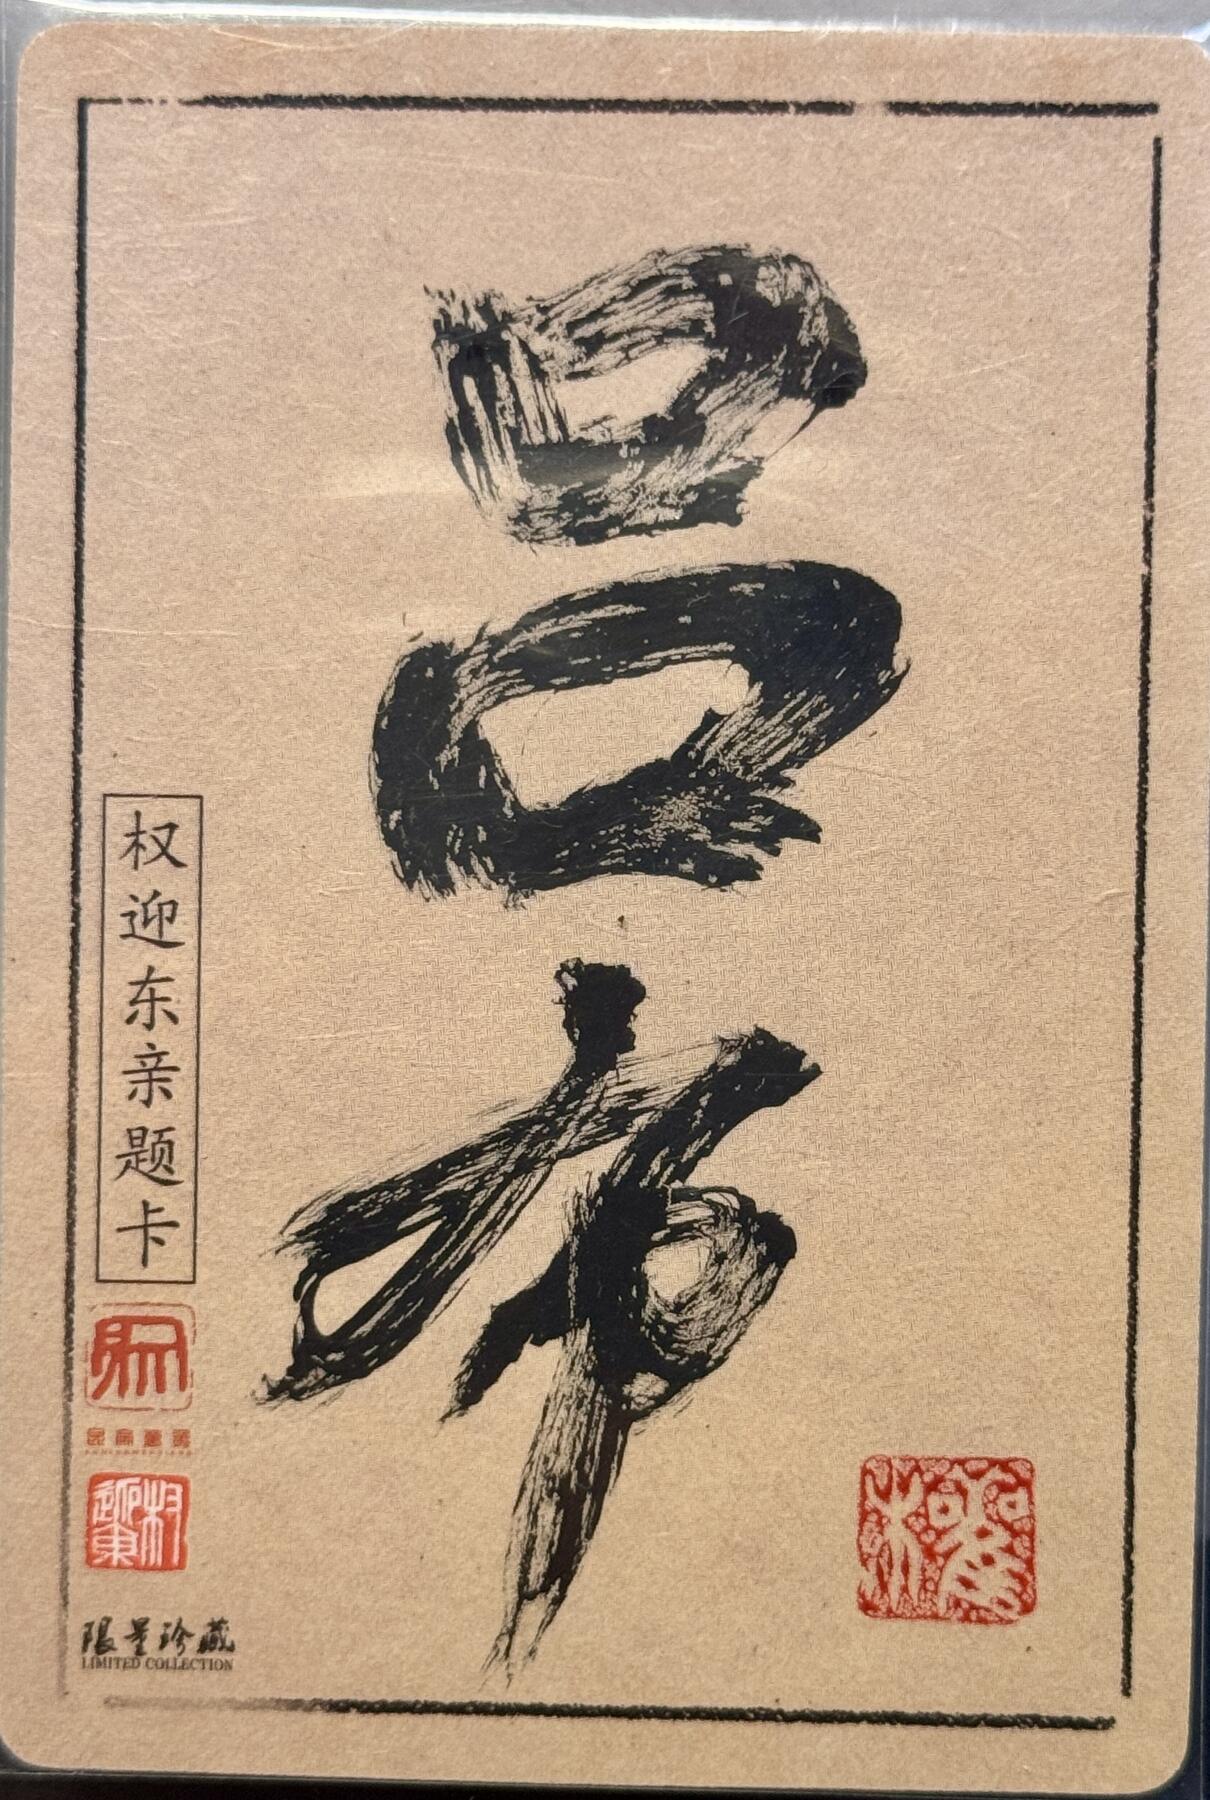 吕布
权迎东亲题卡
限量珍藏
LIMITED COLLECTION